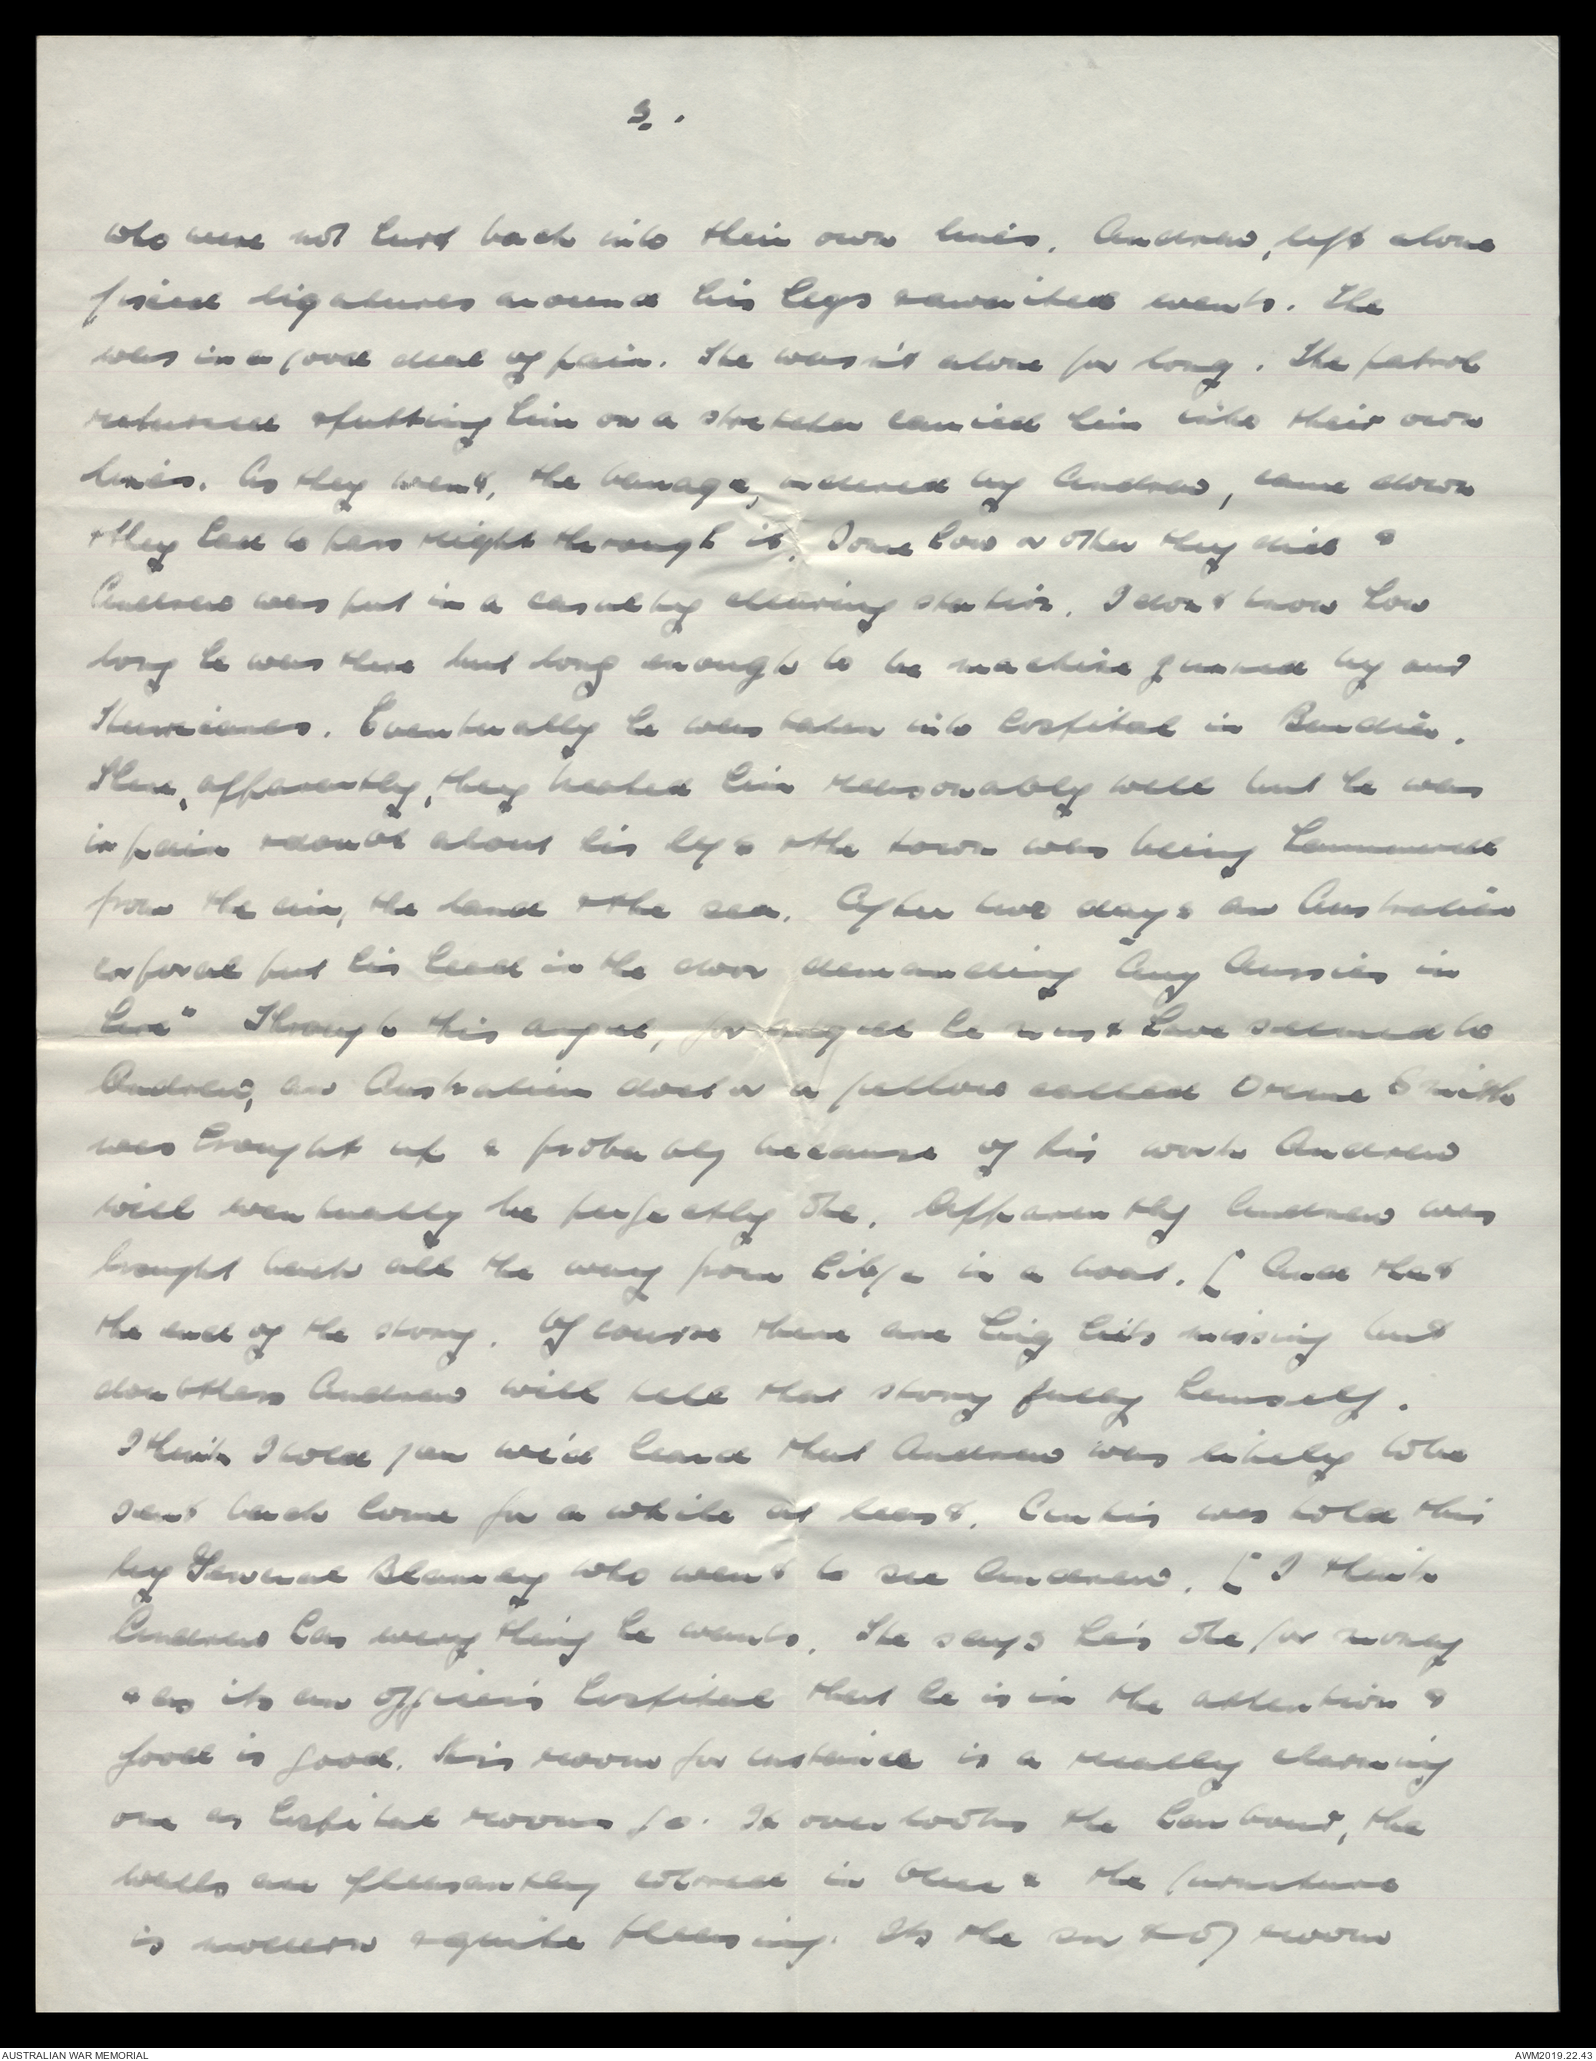 3.
who were not hurt back into their own lines. Andrew, left alone
fixed ligatures around his legs & awaited events. He
was in a good deal of pain. He wasn't alone for long. The patrol
returned & putting him on a stretcher carried him into their own
lines. As they went, the barrage, ordered by Andrew, came down
& they had to pass right through it. Some how or other they did &
Andrew was put in a casualty clearing station. I don't know how
long he was there but long enough to be machine gunned by our
Hurricanes. Eventually he was taken into hospital in Bardia.
There, apparently, they treated him reasonably well but he was
in pain & doubt about his legs & the town was being hammered
from the air, the land & the sea. After two days an Australian
corporal put his head in the door demanding "Any Aussies in
here" Through this angel, for angel he must have seemed to
Andrew, an Australian doctor a fellow called Orme Smith
was brought up & probably because of his work Andrew
will eventually be perfectly Ok. Apparently Andrew was
brought back all the way from Libya in a boat. [ And that
the end of the story. Of course there are big bits missing but
doubtless Andrew will tell that story fully himself.
I think I told you we'd heard that Andrew was likely to be
sent back home for a while at least. Curtis was told this
by General Blamey who went to see Andrew. [ I think
Andrew has everything he wants. He says he's Ok for money
& as its an officer's hospital that he is in the attention &
food is good. His room for instance is a really charming
one as hospital rooms go. It overlooks the harbour, the
walls are pleasantly colored in blue & the furniture
is modern & quite pleasing. Its the sort of room